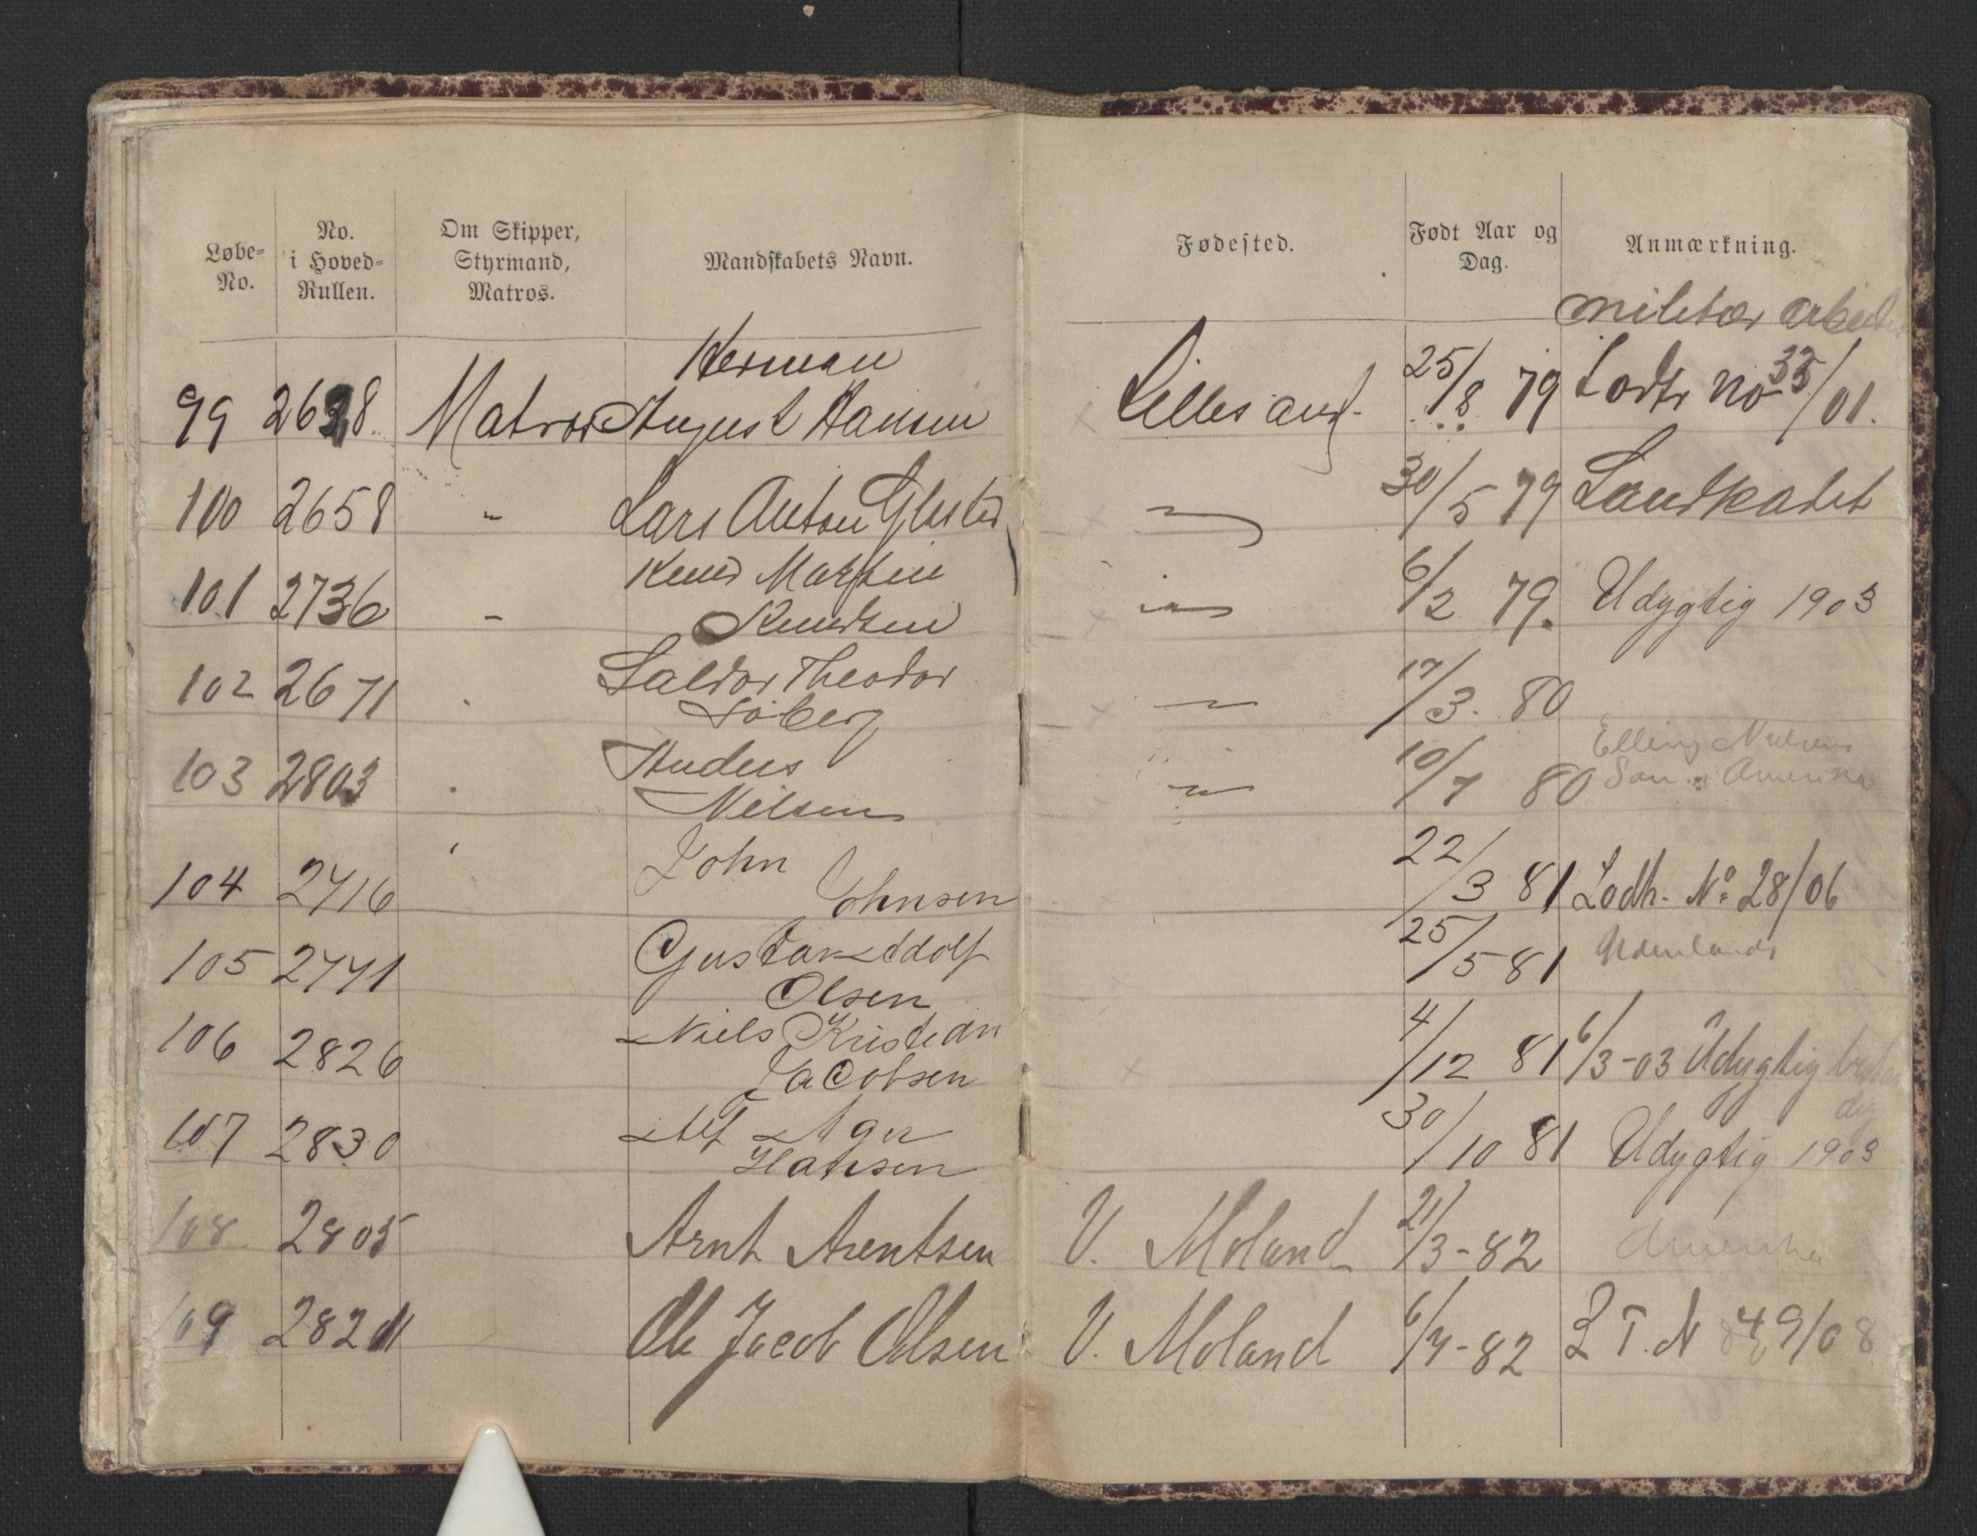 Løbe-No. No. i Hoved-Rullen. Om Skipper, Styrmand, Matros. Mandskabets Navn. Fødested. Født Aar og Dag. Anmærkning.
militær
Herman
99 Matros August Hansen Lillesand 25/8 79 Lodtr No 33/01.
100 2658 " Lars Anton Glistd " 30/5 79 Landkadet
Knud Martin
101 2736 " Knudsen " 6/2 79. Udygtig 1903
102 2671 " Saldor Theodor " 17/3. 80
Søberg
103 2803 " Anders " 10/7 80 Elling Nielsens
Nilsen Søn i Amerika
104 2716 " John 22/3 81 Lodtr. No 28/06
Johnsen
105 2771 Gustav Adolf 25/5 81 Udenlands
Olsen
106 2826 Niels Kristian 4/12 81 6/3-03 Udygtig
Jacobsen
107 2830 Alf Ager 30/10 81 Udygtig 1903
Hansen
108 2805 Arnt Arentsen V. Moland 21/3-82 Amerika
109 2821 Ole Jacob Olsen V. Moland 6/7-82 L T. N 49/08